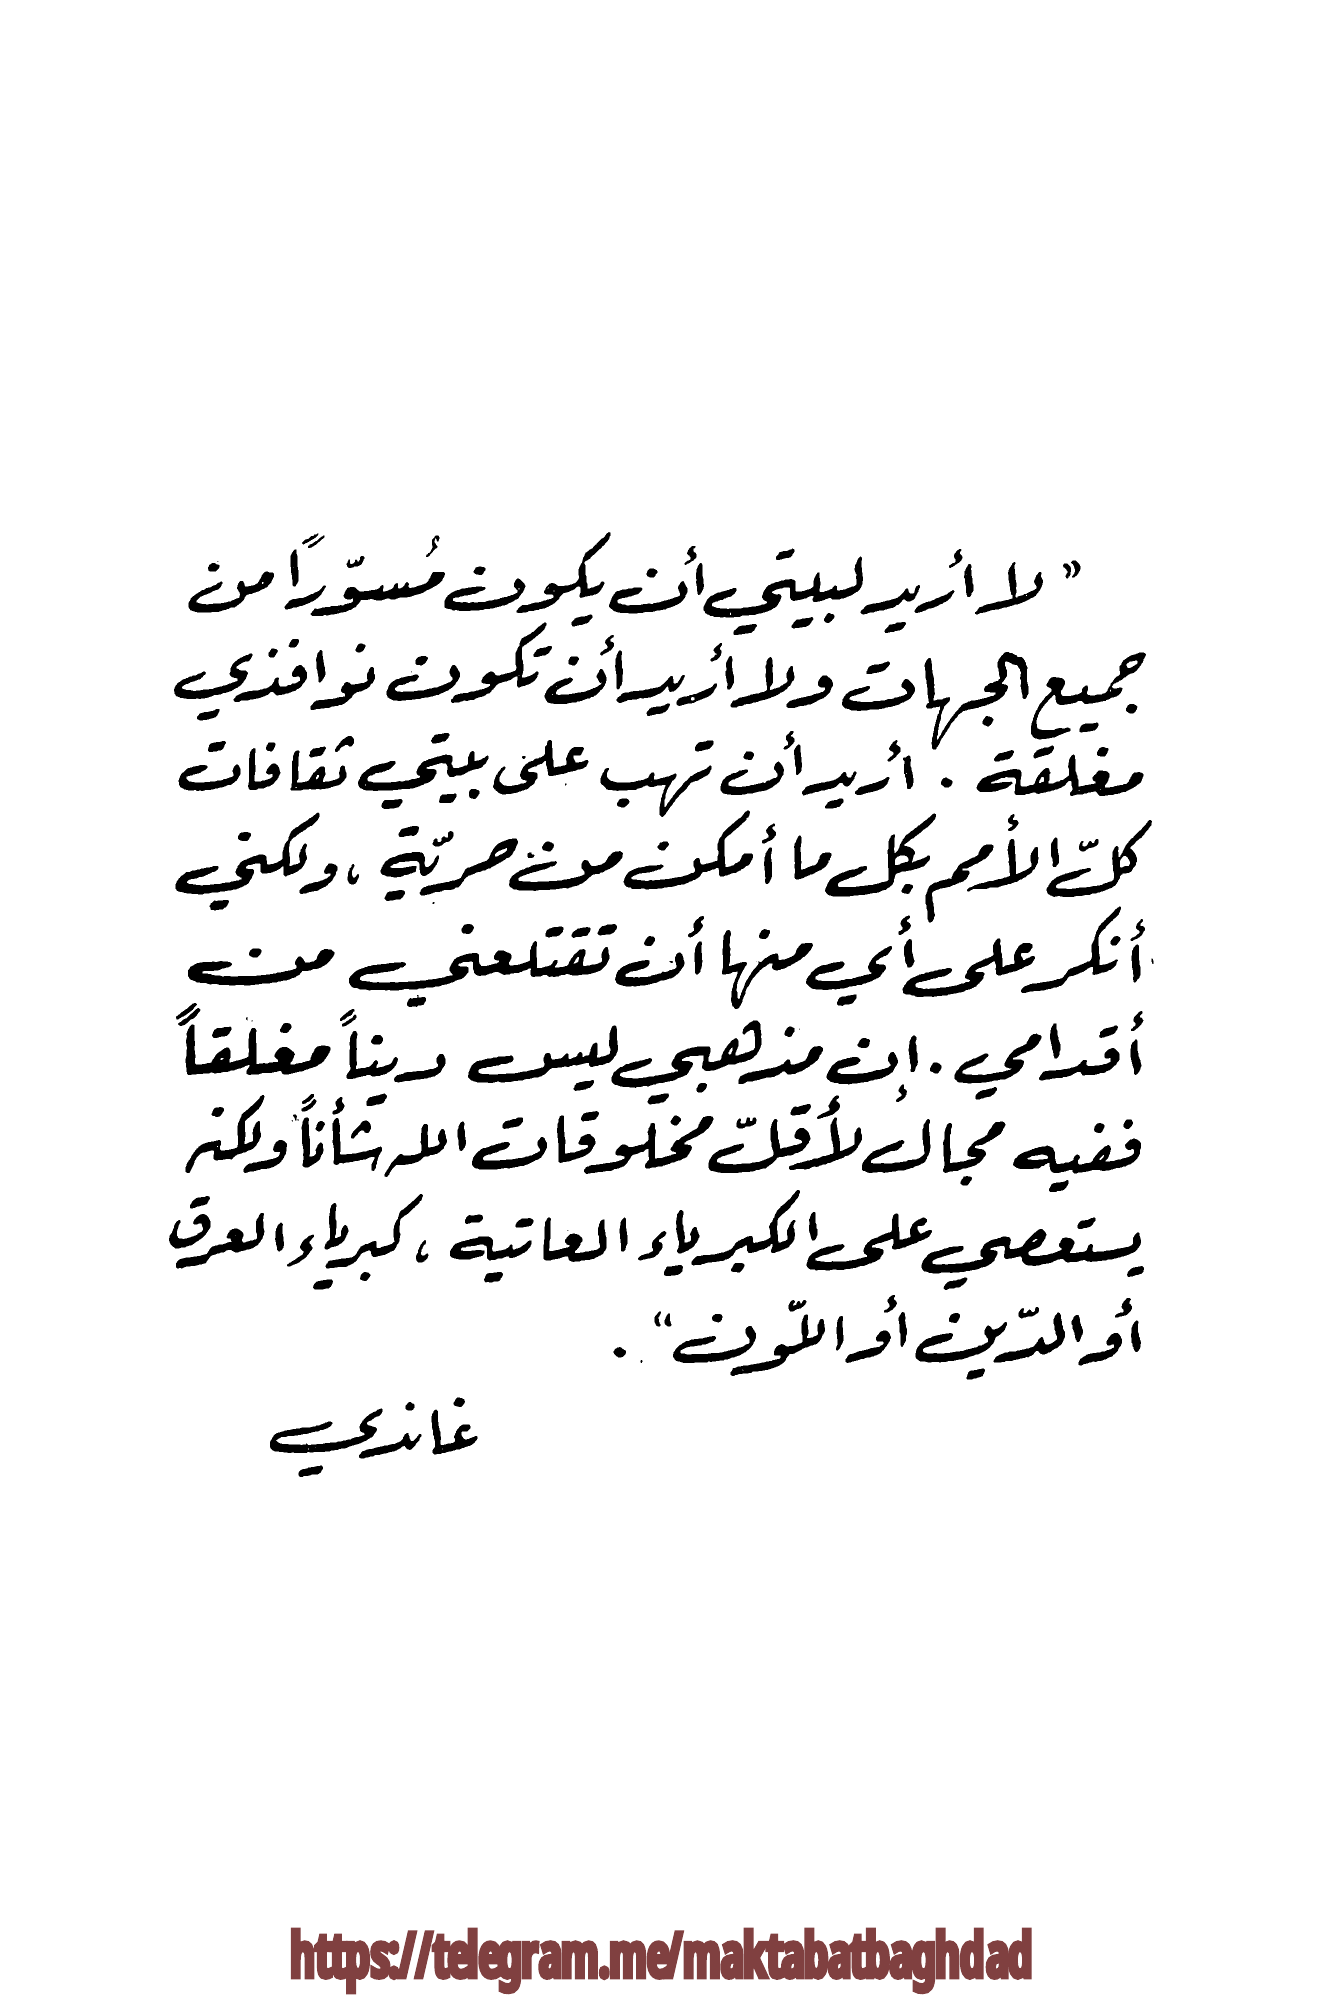 « لا أريد لبيتي أن يكون مُسوّراً من
جميع الجهات ولا أريد أن تكون نوافذي
مغلقة . أريد أن تهب على بيتي ثقافات
كلّ الأمم بكل ما أمكن من حريّة ، ولكني
أنكر على أي منها أن تقتلعني من
أقدامي . إن مذهبي ليس ديناً مغلقاً
ففيه مجال لأقلّ مخلوقات الله شأناً ولكنه
يستعصي على الكبرياء العاتية ، كبرياء العرق
أو الدّين أو اللّون “ .
غاندي
https://telegram.me/maktabatbaghdad